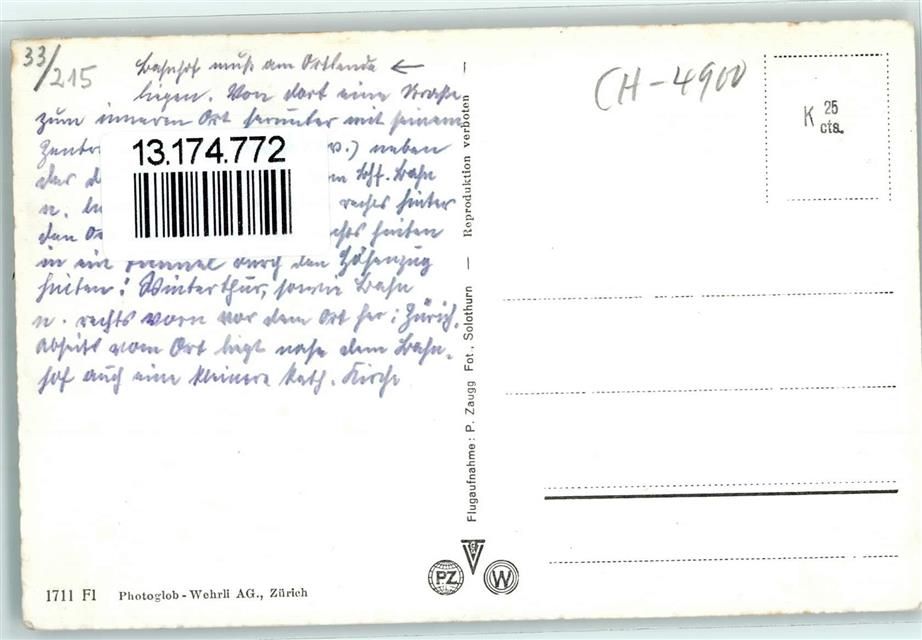 33/215
Bahnhof muß am Ortsende ←
liegen. Von dort eine Straße
zum inneren Ort herunter mit seinem
Zentr 13.174.772 .) neben
das d Bhf. Bahn
n. rechts hinter
den O hinten
in ein Tunnel durch den Höhenzug
hinten: Winterthur, sowie Bahn
n. rechts vorn vor dem Ort her: Zürich.
Abseits vom Ort liegt nahe dem Bahn-
hof auch eine kleinere kath. Kirche
CH-4900
K 25 cts.
Flugaufnahme: P. Zaugg Fot., Solothurn — Reproduktion verboten
PZ
W
1711 Fl Photoglob-Wehrli AG., Zürich